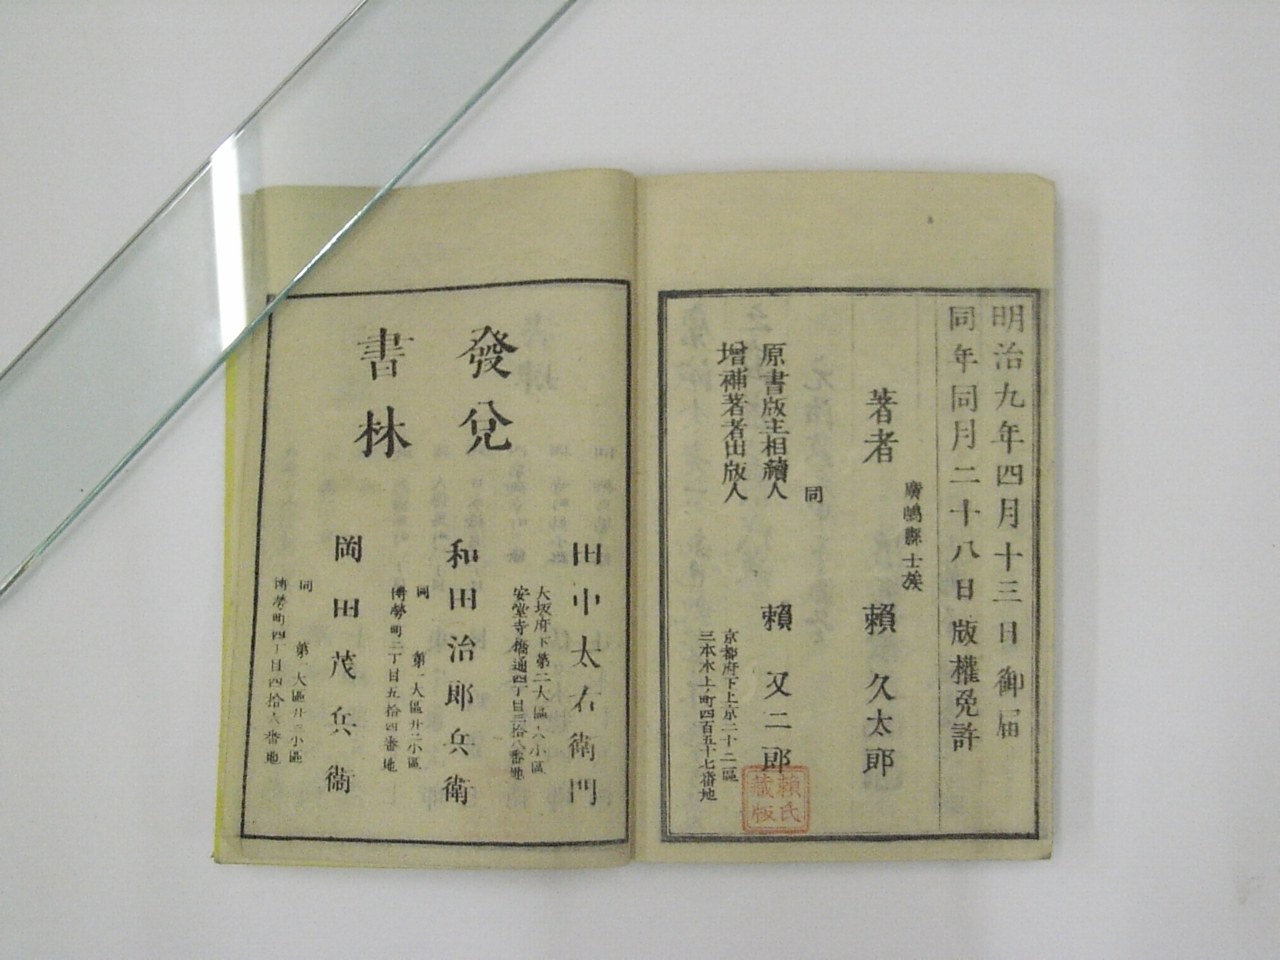 明治九年四月十三日御届
同年同月二十八日版權免許
廣嶋縣士族
著者 賴久太郎
同
原書版主相續人 賴又二郎
增補著者出版人
京都府下上京二十二區
三本木上ノ町四百五十七番地
賴氏
藏版
發兌
書林
田中太右衛門
大坂府下第二大區六小區
安堂寺橋通四丁目三拾八番地
和田治郎兵衛
同 第一大區廿三小區
博勞町二丁目五拾四番地
岡田茂兵衛
同 第一大區廿三小區
博勞町四丁目四拾六番地